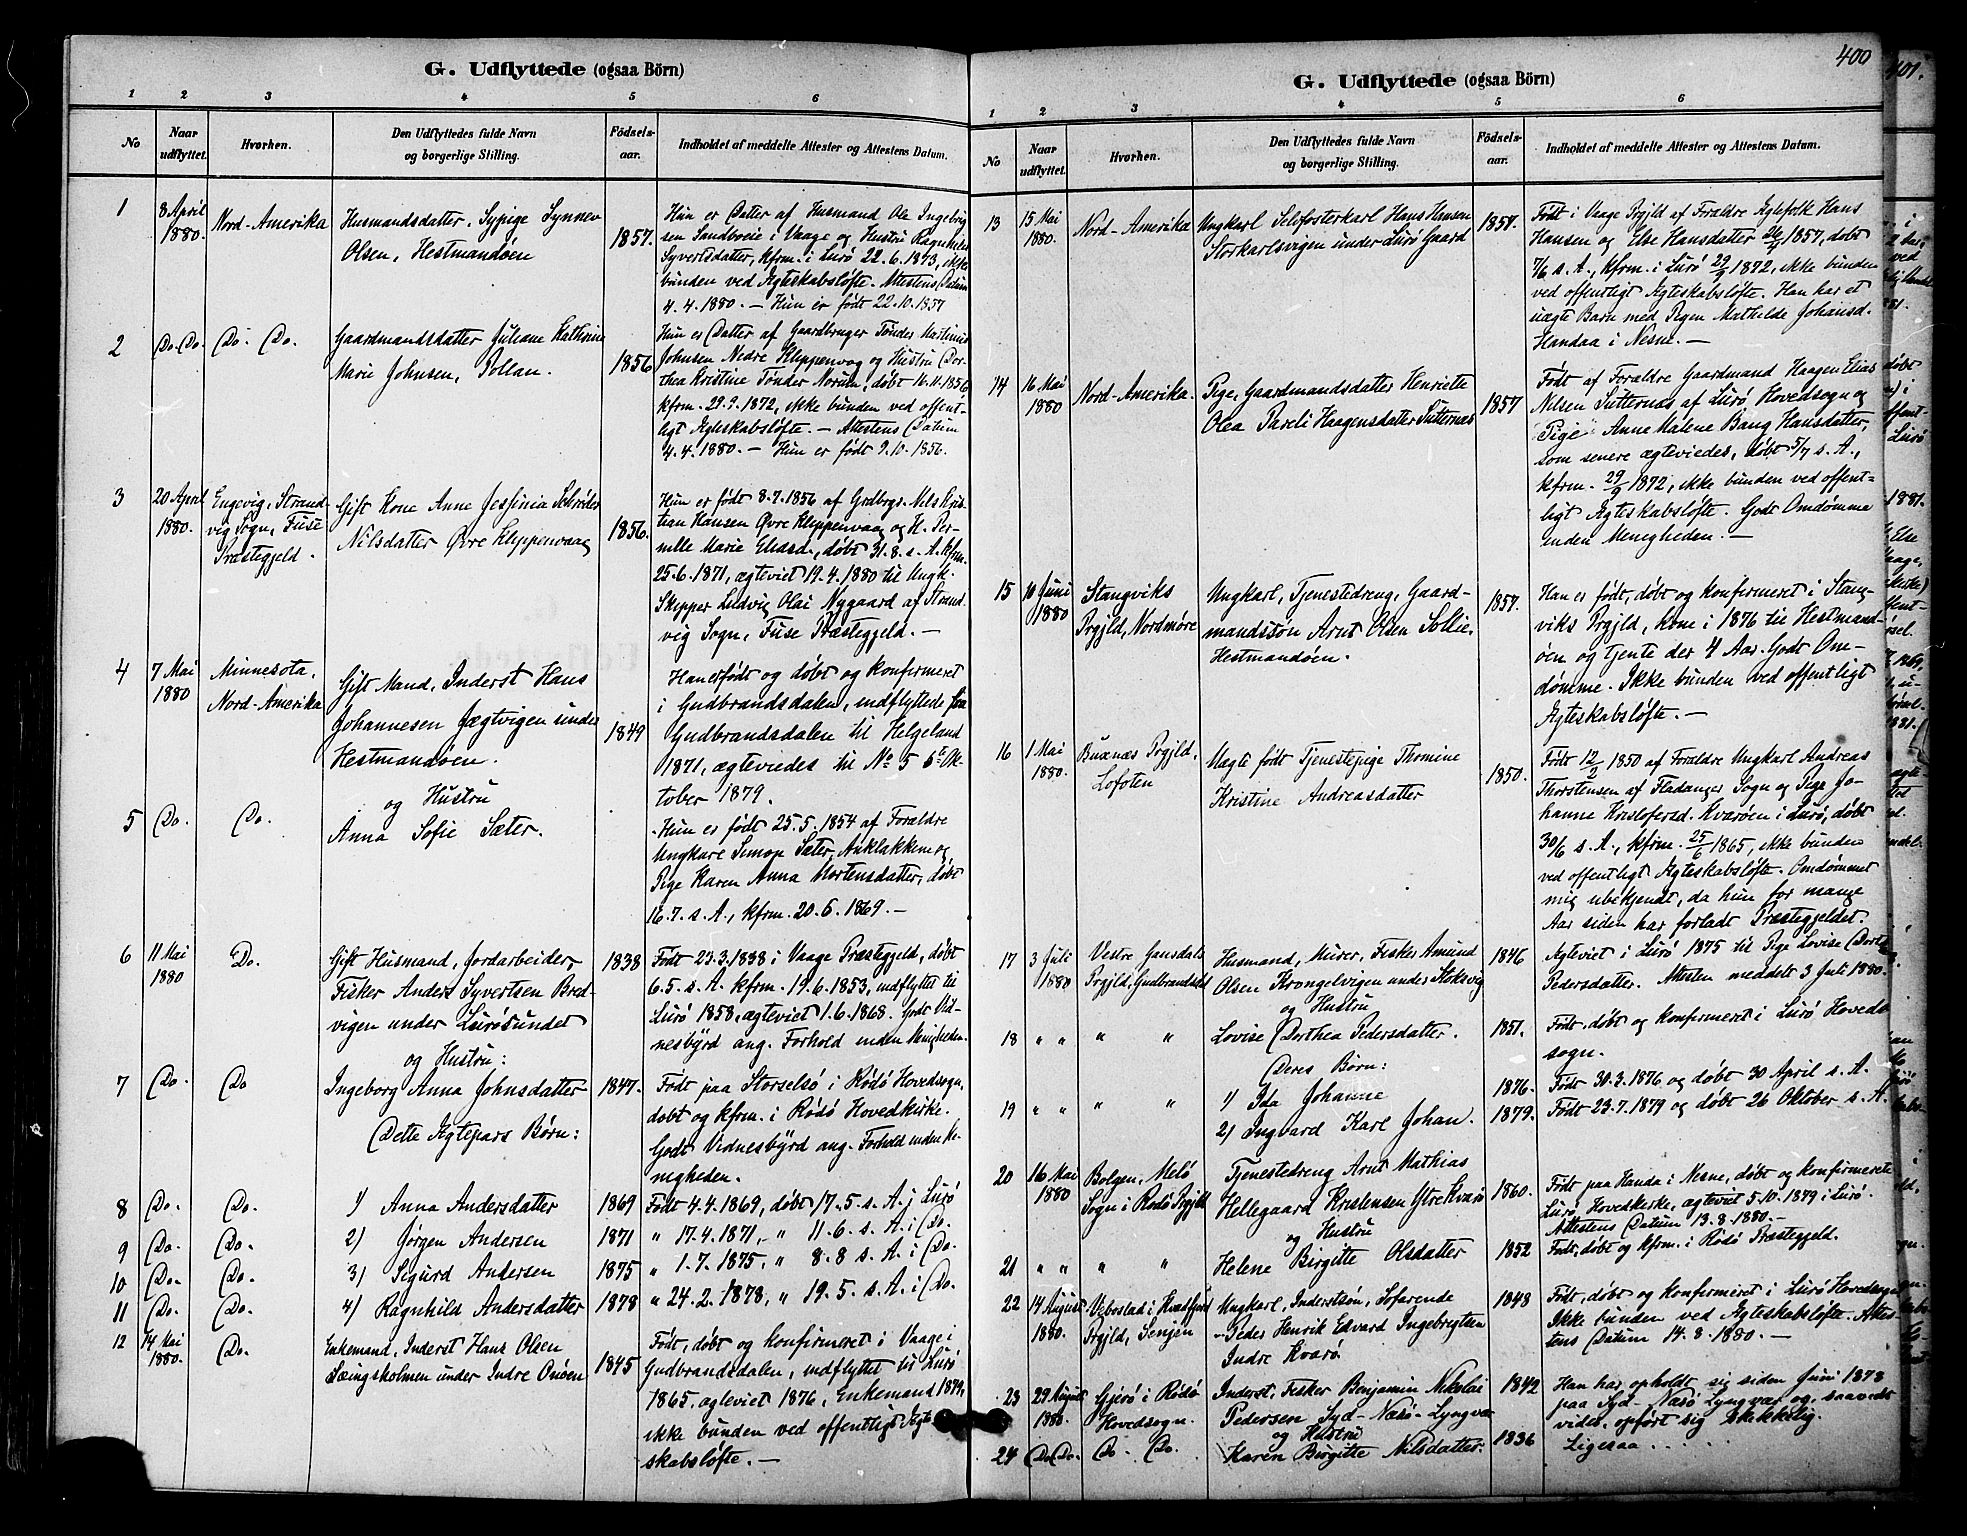 G. Udflyttede (ogsaa Börn)
1 2 3 4 5 6
No
Naar udflyttet.
Hvorhen.
Den Udflyttedes fulde Navn og borgerlige Stilling.
Födsels-aar.
Indholdet af meddelte Attester og Attestens Datum.
1
8 April
1880.
Nord-Amerika
Husmandsdatter, Sypige Synnev
Olsen, Hestmandøen
1857.
Hun er Datter af Husmand Ole Ingebrigt-
sen Sandboeie i Vaage og Hustru Ragnhild
Syvertsdatter, kfrm. i Lurö 22.6.1873, ikke
bunden ved Ægteskabsløfte. Attestens Datum
4.4.1880. — Hun er født 22.10.1857
2
Do. Do.
Do. Do.
Gaardmandsdatter Juliane Kathrine
Marie Johnsen, Pollan.
1856
Hun er Datter af Gaardbruger Tønder Martinus
Johnsen Nedre Kleppenvag og Hustru Dor-
thea Kristine Tønder Norum, døbt 16.11.1856
kfrm. 29.9.1872, ikke bunden ved offent-
ligt Ægteskabsløfte. — Attestens Datum
4.4.1880. — Hun er født 9.10.1856.
3
20 April
1880.
Engevig, Strand-
vig Sogn, Fuse
Præstegjeld.
Gift Kone Anne Jessinia Schrøder
Nilsdatter Øvre Kleppenvaag
1856.
Hun er født 8.7.1856 af Grdbrgr. Nils Kris-
tian Hansen Øvre Kleppenvaag og H. Per-
nille Marie Eliasd., døbt 31.8. s. A. kfrm.
25.6.1871, ægteviet 19.4.1880 til Ungk.
Skipper Ludvig Olai Nygaard af Strand-
vig Sogn, Fuse Præstegjeld. —
4
7 Mai
1880
Minnesota,
Nord-Amerika
Gift Mand, Inderst Hans
Johannesen Jægtvigen under
Hestmandøen.
og Hustru
1849
Han er født og døbt og konfirmeret
i Gudbrandsdalen, indflyttede fra
Gudbrandsdalen til Helgeland
1871, ægteviedes til No 5 6te Ok-
tober 1879.
5
Do.
Do.
Anna Sofie Sæter.
Hun er født 25.5.1854 af Forældre
Ungkarl Simon Sæter, Anklakken og
Pige Karen Anna Mortensdatter, døbt
16.7. s. A., kfrm. 20.6.1869. —
6
11 Mai
1880
Do.
Gift Husmand, Jordarbeider,
Fisker Anders Syvertsen Bred-
vigen under Lurösundet
og Hustru:
1838
Født 23.3.1838 i Vaage Præstegjeld, døbt
6.5. s. A. kfrm. 19.6.1853, indflyttet til
Lurö 1858, ægteviet 1.6.1868. Godt Vid-
nesbyrd ang. Forhold inden Menigheden.
7
Do.
Do
Ingeborg Anna Johnsdatter
Dette Ægtepars Børn:
1847.
Født paa Storselsö i Rödö Hovedsogn,
døbt og kfrm. i Rödö Hovedkirke.
Godt Vidnesbyrd ang. Forhold inden Me-
nigheden.
8
Do.
Do.
1) Anna Andersdatter
1869
Født 4.4.1869, døbt 17.5. s. A. i Lurö
9
Do.
Do.
2) Jørgen Andersen
1871
" 17.4.1871, " 11.6. s. A. i Do.
10
Do.
Do.
3) Sigurd Andersen
1875
" 1.7.1875, " 8.8 s. A. i Do.
11
Do.
Do.
4) Ragnhild Andersdatter
1878
" 24.2.1878, " 19.5. s. A. i Do.
12
14 Mai
1880.
Do.
Enkemand, Inderst Hans Olsen
Længsholmen under Indre Onöen
1845
Født, døbt og konfirmeret i Vaage i
Gudbrandsdalen, indflyttet til Lurö
1865, ægteviet 1876, Enkemand 1879,
ikke bunden ved offentligt Ægte-
skabsløfte. —
400
G. Udflyttede (ogsaa Börn)
1 2 3 4 5 6
No
Naar udflyttet.
Hvorhen.
Den Udflyttedes fulde Navn og borgerlige Stilling.
Födsels-aar.
Indholdet af meddelte Attester og Attestens Datum.
13
15 Mai
1880.
Nord-Amerika
Ungkarl Selvfosterkarl Hans Hansen
Storkarlsvigen under Lurö Gaard
1857.
Født i Vaage Prgjld af Forældre Ægtefolk Hans
Hansen og Else Hansdatter 26/4 1857, døbt
7/6 s. A., kfrm. i Lurö 29/9 1872, ikke bunden
ved offentligt Ægteskabsløfte. Han har et
uægte Barn med Pigen Mathilde Johansd.
Handaa i Nesne. —
14
16 Mai
1880
Nord-Amerika.
Pige, Gaardmandsdatter Henriette
Olea Pareli Haagensdatter Sutternæs
1857
Født af Forældre Gaardmand Haagen Elias
Nilsen Sutternæs af Lurö Hovedsogn og
"Pige" Anne Malene Bang Hansdatter,
som senere ægteviedes, døbt 5/7 s. A.,
kfrm. 29/9 1872, ikke bunden ved offent-
ligt Ægteskabsløfte. Godt Omdømme
inden Menigheden. —
15
10 Juni
1880
Stangviks
Prgjld, Nordmøre
Ungkarl, Tjenestedreng, Gaard-
mandssøn Arnt Olsen Sollie,
Hestmandöen.
1857.
Han er født, døbt og konfirmeret i Stang-
viks Prgjld, kom i 1876 til Hestmand-
øen og tjente der 4 Aar. Godt Om-
dømme. Ikke bunden ved offentligt
Ægteskabsløfte. —
16
1 Mai
1880.
Buxnæs Prgjld,
Lofoten
Uægte født Tjenestepige Thomine
Kristine Andreasdatter
1850.
Født 12/2 1850 af Forældre Ungkarl Andreas
Thorstensen af Fladanger Sogn og Pige Jo-
hanne Kristofersd. Kvarøen i Lurö, døbt
30/6 s. A., kfrm. 25/6 1865, ikke bunden
ved offentligt Ægteskabsløfte. Omdømmet
mig ubekjendt, da hun for mange
Aar siden har forladt Præstegjeldet.
17
3 Juli
1880
Vestre Gausdals
Prgjld, Gudbrandsdal
Husmand, Murer, Fisker Amund
Olsen Krongelvigen under Stokvig
og Hustru
1846
Ægteviet i Lurö 1875 til Pige Lovise Dorth.
Pedersdatter. Attesten meddelt 3 Juli 1880.
18
" "
" "
Lovise Dorthea Pedersdatter.
Deres Børn:
1851.
Født, døbt og konfirmeret i Lurö Hoved-
sogn.
1) Ida Johanne
1876.
Født 30.3.1876 og døbt 30 April s. A.
19
" "
" "
2) Ingvard Karl Johan.
1879.
Født 23.7.1879 og døbt 26 Oktober s. A.
20
16 Mai
1880
Bolgen, Melö
Sogn i Rödö Prgjld
Tjenestedreng Arnt Mathias
Hellegaard Kristensen Ytre Kvarö
og Hustru
1860.
Født paa Handa i Nesne, døbt og konfirmeret i
Lurö Hovedkirke, ægteviet 5.10.1879 i Lurö.
Attestens Datum 13.8.1880.—
21
" "
" "
Helene Birgitte Olsdatter
1852
Født, døbt og kfrm. i Rödö Præstegjeld.
22
14 August
1880.
Veborlad i Kvædfjord
Prgjld, Senjen
Ungkarl, Inderstsøn, Søfarende
Peder Henrik Edvard Ingebrigtsen
Indre Kvarö
1848
Født, døbt og konfirmeret i Lurö Hovedsogn
Ikke bunden ved Ægteskabsløfte. Attes-
tens Datum 14.8.1880. —
23
29 August
1880.
Gjerö i Rödö
Hovedsogn.
Inderst, Fisker Benjamin Nikolai
Pedersen Syd-Næsö-Lyngvær
og Hustru
1842
Han har opholdt sig siden Juni 1878
paa Syd-Næsö Lyngvær og, saavidt
vides, opført sig skikkelig.
24
Do Do.
Do. Do.
Karen Birgitte Nilsdatter.
1836
Ligesaa . . . . .
401.